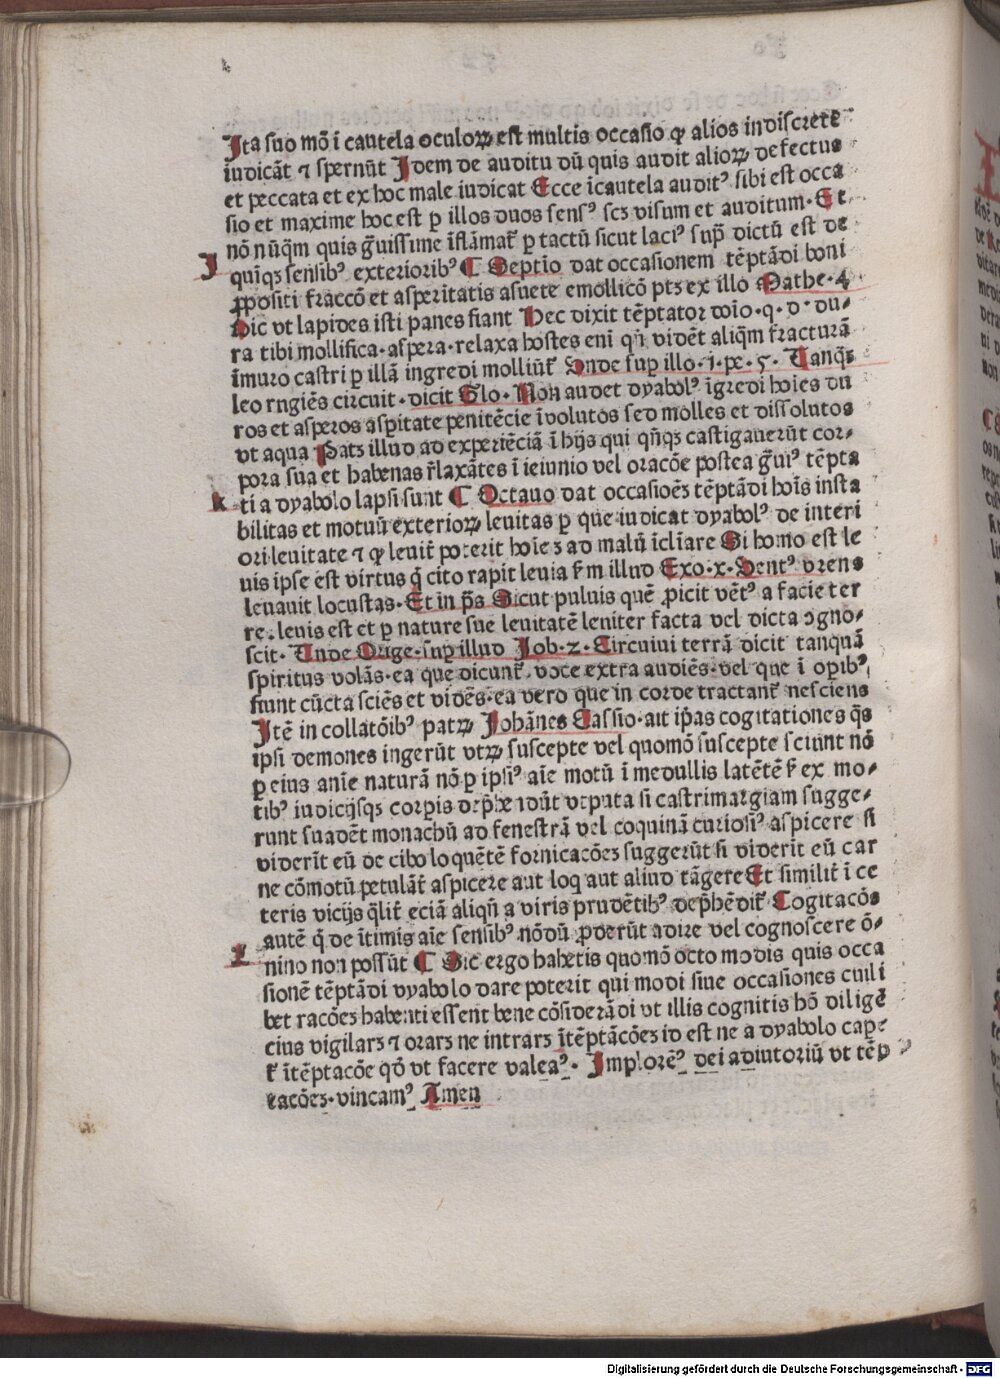 Ita suo mō ī cautela oculoꝝ est multis occasio ꝙ alios indiscrete
iudicāt ⁊ spernūt Idem de auditu dū quis audit alioꝝ defectus
et peccata et ex hoc male iudicat Ecce īcautela auditꝰ sibi est occa
sio et maxime hoc est ꝑ illos duos sensꝰ scꝫ visum et auditum· Et
nō nūq̄m quis g̃uissime īflāmat̄ ꝑ tactū sicut laciꝰ sup̄ dictū est de
I quīqꝫ sensibꝰ exterioribꝰ ¶ Septīo dat occasionem tēptādi boni
ꝓpositi fraccō et asperitatis asuete emollicō ptꝫ ex illo Mathe·4
Dic vt lapides isti panes fiant Hec dixit tēptator dīo·q·d·du⸗
ra tibi mollifica·aspera·relaxa hostes enī qn̄ vidēt aliq̄m fracturā
īmuro castri ꝑ illā ingredi molliūt̄ Unde sup illo·1·pe·5· Tanqꝫ
leo rngiēs circuit·dicit Glo· Non audet dyabolꝰ īgredi hoīes du
ros et asperos aspitate penitēcie īvolutos sed molles et dissolutos
vt aqua Patꝫ illud ad experiēciā ī hijs qui qn̄qꝫ castigauerūt cor⸗
pora sua et habenas r̄laxātes ī ieiunio vel oracōe postea g̃uiꝰ tēpta
k ti a dyabolo lapsi sunt ¶ Octauo dat occasioēꝫ tēptādi hoīs insta
bilitas et motuū exterioꝝ leuitas ꝑ que iudicat dyabolꝰ de interi
ori leuitate ⁊ ꝙ leuit̄ poterit hoīeꝫ ad malū īclīare Si homo est le
uis ipse est virtus q̄ cito rapit leuia s̄m illud Exo·x·Uentꝰ vrens
leuauit locustas·Et in p̄s Sicut puluis quē ꝓicit vētꝰ a facie ter
re·leuis est et ꝑ nature sue leuitatē leniter facta vel dicta ꝯgno⸗
scit· Unde Orige·sup illud Job·2·Circuiui terrā dicit tanquā
spiritus volās·ea que dicunt̄·voce extra audiēs·vel que ī oꝑibꝰ
fiunt cūcta sciēs et vidēs·ea vero que in corde tractant̄ nesciens
Itē in collatōibꝰ patꝝ Johānes Cassio·ait ip̄as cogitationes q̄s
ipsi demones ingerūt vtꝝ suscepte vel quomō suscepte sciunt nō
ꝑ eius anīe naturā nō ꝑ ipsiꝰ aīe motū ī medullis latētē s̄ ex mo⸗
tibꝰ iudicijsqꝫ corꝑis dep̄hendūt vtputa si castrimargiam sugge⸗
runt suadēt monachū ad fenestrā vel coquinā curiosiꝰ aspicere si
viderīt eū de cibo loquētē fornicacōeꝫ suggerūt si viderit eū car
ne cōmotū petulāt̄ aspicere aut loq aut aliud tāgere Et similit̄ ī ce
teris vicijs q̄lit̄ eciā aliqn̄ a viris prudētibꝰ dep̄hēdit̄ Cogitacōs
autē q̄ de ītimis aīe sensibꝰ nōdū ꝓderūt adire vel cognoscere ō⸗
L nino non possūt ¶ Sic ergo habetis quomō octo modis quis occa
sionē tēptādi dyabolo dare poterit qui modi siue occasiones cuili
bet racōeꝫ habenti essent bene cōsiderādi vt illis cognitis hō diligē
cius vigilarꝫ ⁊ orarꝫ ne intrarꝫ ītēptācōeꝫ id est ne a dyabolo cape
ret̄ ītēptacōe qd̄ vt facere valeaꝰ· Implorēꝰ dei adiutoriū vt tēp
tacōeꝫ·vincamꝰ Amen
Digitalisierung gefördert durch die Deutsche Forschungsgemeinschaft · DFG